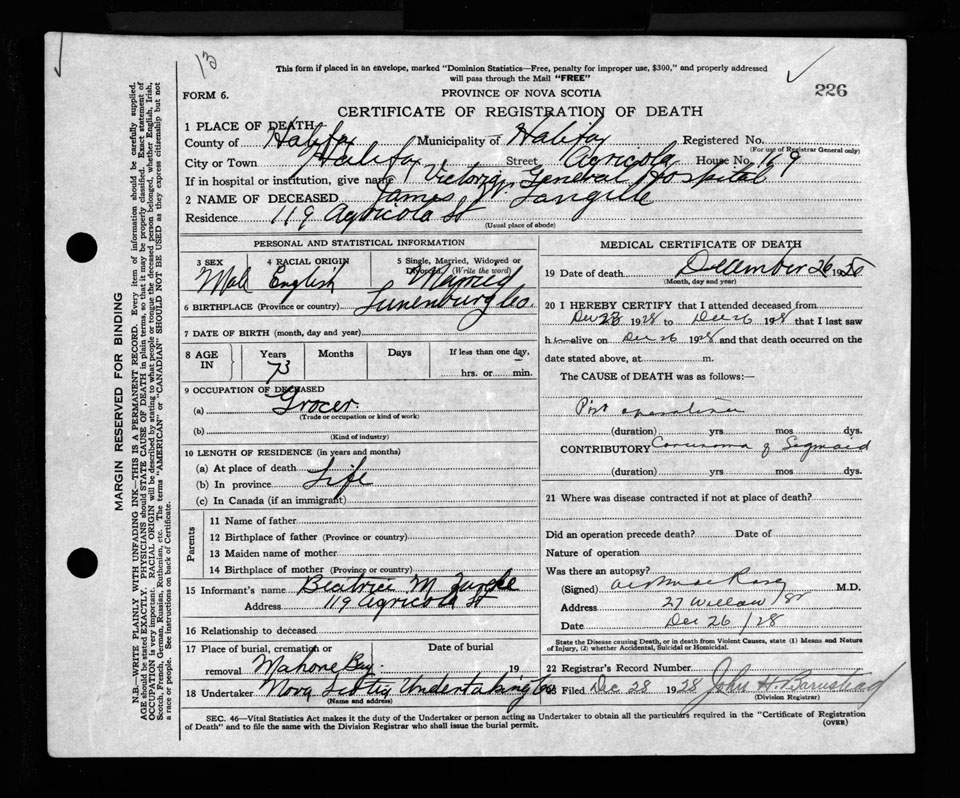 13
226
This form if placed in an envelope, marked "Dominion Statistics—Free, penalty for improper use, $300," and properly addressed
will pass through the Mail "FREE"
FORM 6. PROVINCE OF NOVA SCOTIA
CERTIFICATE OF REGISTRATION OF DEATH
1 PLACE OF DEATH
County of Halifax Municipality of Halifax Registered No.
(For use of Registrar General only)
City or Town Halifax Street Agricola House No. 169
If in hospital or institution, give name Victoria General Hospital
2 NAME OF DECEASED James Langille
Residence 119 Agricola St
(Usual place of abode)
PERSONAL AND STATISTICAL INFORMATION
3 SEX 4 RACIAL ORIGIN 5 Single, Married, Widowed or Divorced. (Write the word)
Male English Married
6 BIRTHPLACE (Province or country) Lunenburg Co.
7 DATE OF BIRTH (month, day and year)
8 AGE IN Years Months Days If less than one day,
73 hrs. or min.
9 OCCUPATION OF DECEASED
(a) Grocer
(Trade or occupation or kind of work)
(b)
(Kind of industry)
10 LENGTH OF RESIDENCE (in years and months)
(a) At place of death
(b) In province Life
(c) In Canada (if an immigrant)
Parents
11 Name of father
12 Birthplace of father (Province or country)
13 Maiden name of mother
14 Birthplace of mother (Province or country)
15 Informant's name Beatrice M.
Address 119 Agricola St
16 Relationship to deceased
17 Place of burial, cremation or removal Mahone Bay. Date of burial 19
18 Undertaker Nova Scotia Undertaking Co
(Name and address)
MEDICAL CERTIFICATE OF DEATH
19 Date of death December 26 1928
(Month, day and year)
20 I HEREBY CERTIFY that I attended deceased from
Dec 23 1928 to Dec 26 1928 that I last saw
h im alive on Dec 26 1928 and that death occurred on the
date stated above, at m.
The CAUSE of DEATH was as follows:—
Post operative
(duration) yrs mos dys.
CONTRIBUTORY Carcinoma of Sigmoid
(duration) yrs. mos. dys.
21 Where was disease contracted if not at place of death?
Did an operation precede death? Date of
Nature of operation
Was there an autopsy?
(Signed) M.D.
Address 27 Willow St
Date Dec 26/28
State the Disease causing Death, or in death from Violent Causes, state (1) Means and Nature
of Injury, (2) whether Accidental, Suicidal or Homicidal.
22 Registrar's Record Number
Filed Dec 28 1928 John H
(Division Registrar)
SEC. 46—Vital Statistics Act makes it the duty of the Undertaker or person acting as Undertaker to obtain all the particulars required in the "Certificate of Registration
of Death" and to file the same with the Division Registrar who shall issue the burial permit. (OVER)
MARGIN RESERVED FOR BINDING
N.B.—WRITE PLAINLY WITH UNFADING INK—THIS IS A PERMANENT RECORD. Every item of information should be carefully supplied.
AGE should be stated EXACTLY. PHYSICIANS should STATE CAUSE OF DEATH in plain terms, so that it may be properly classified. Exact statement of
OCCUPATION is very important. RACIAL ORIGIN will be described by stating to what people or tongue the deceased person belonged, whether English, Irish,
Scotch, French, German, Russian, Ruthenian, etc. The terms "AMERICAN" or "CANADIAN" SHOULD NOT BE USED as they express citizenship but not
a race or people. See instructions on back of Certificate.